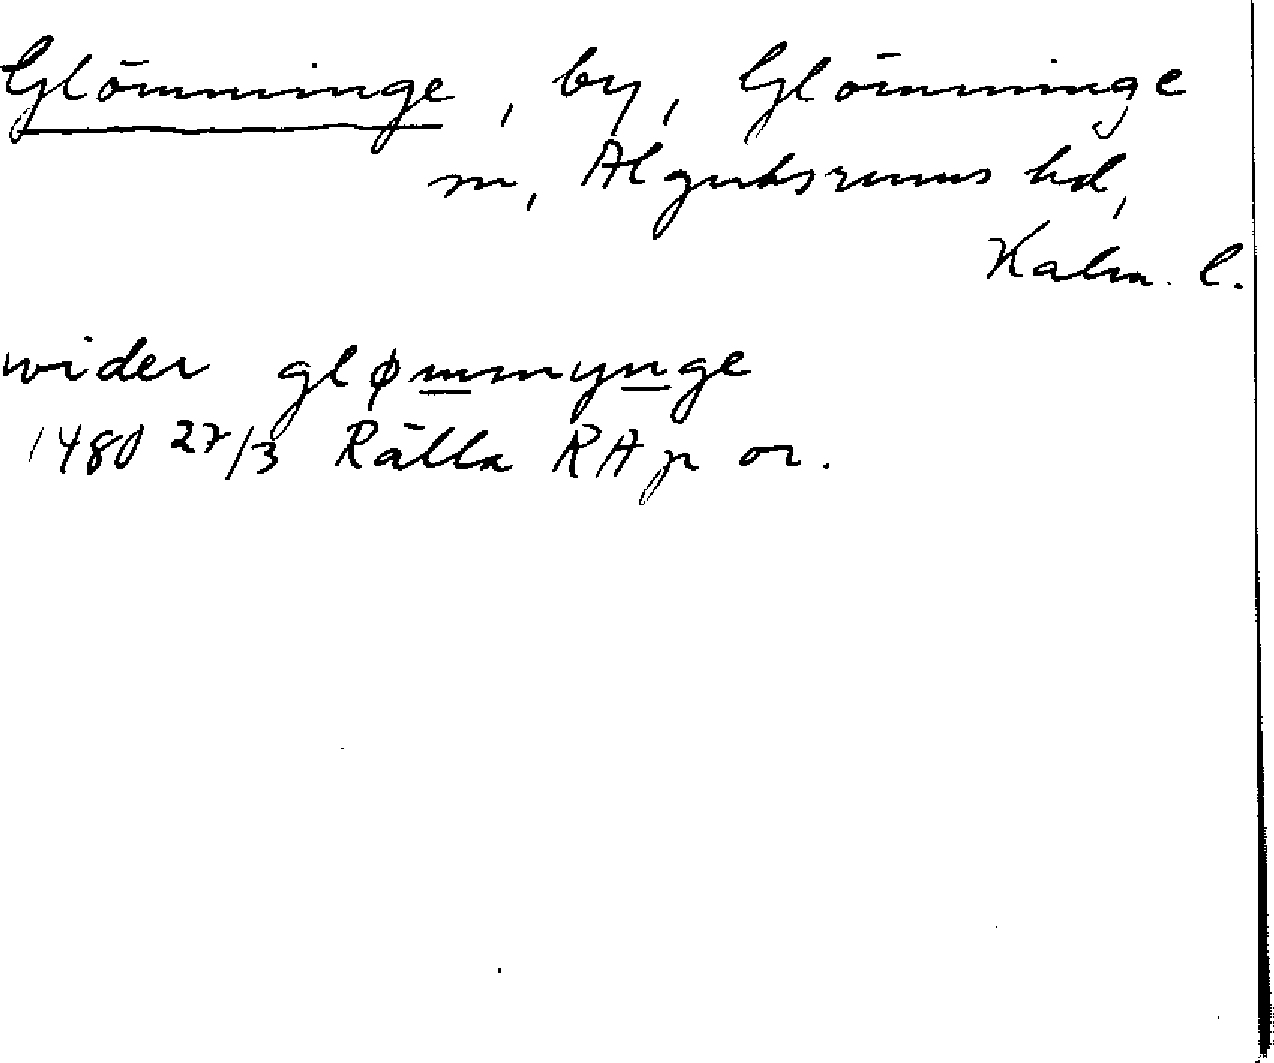 Glömminge, by, Glömminge
sn, Algutsrums hd,
Kalm. l.
wider glømmynge
1480 27/3 Rälla RA p or.